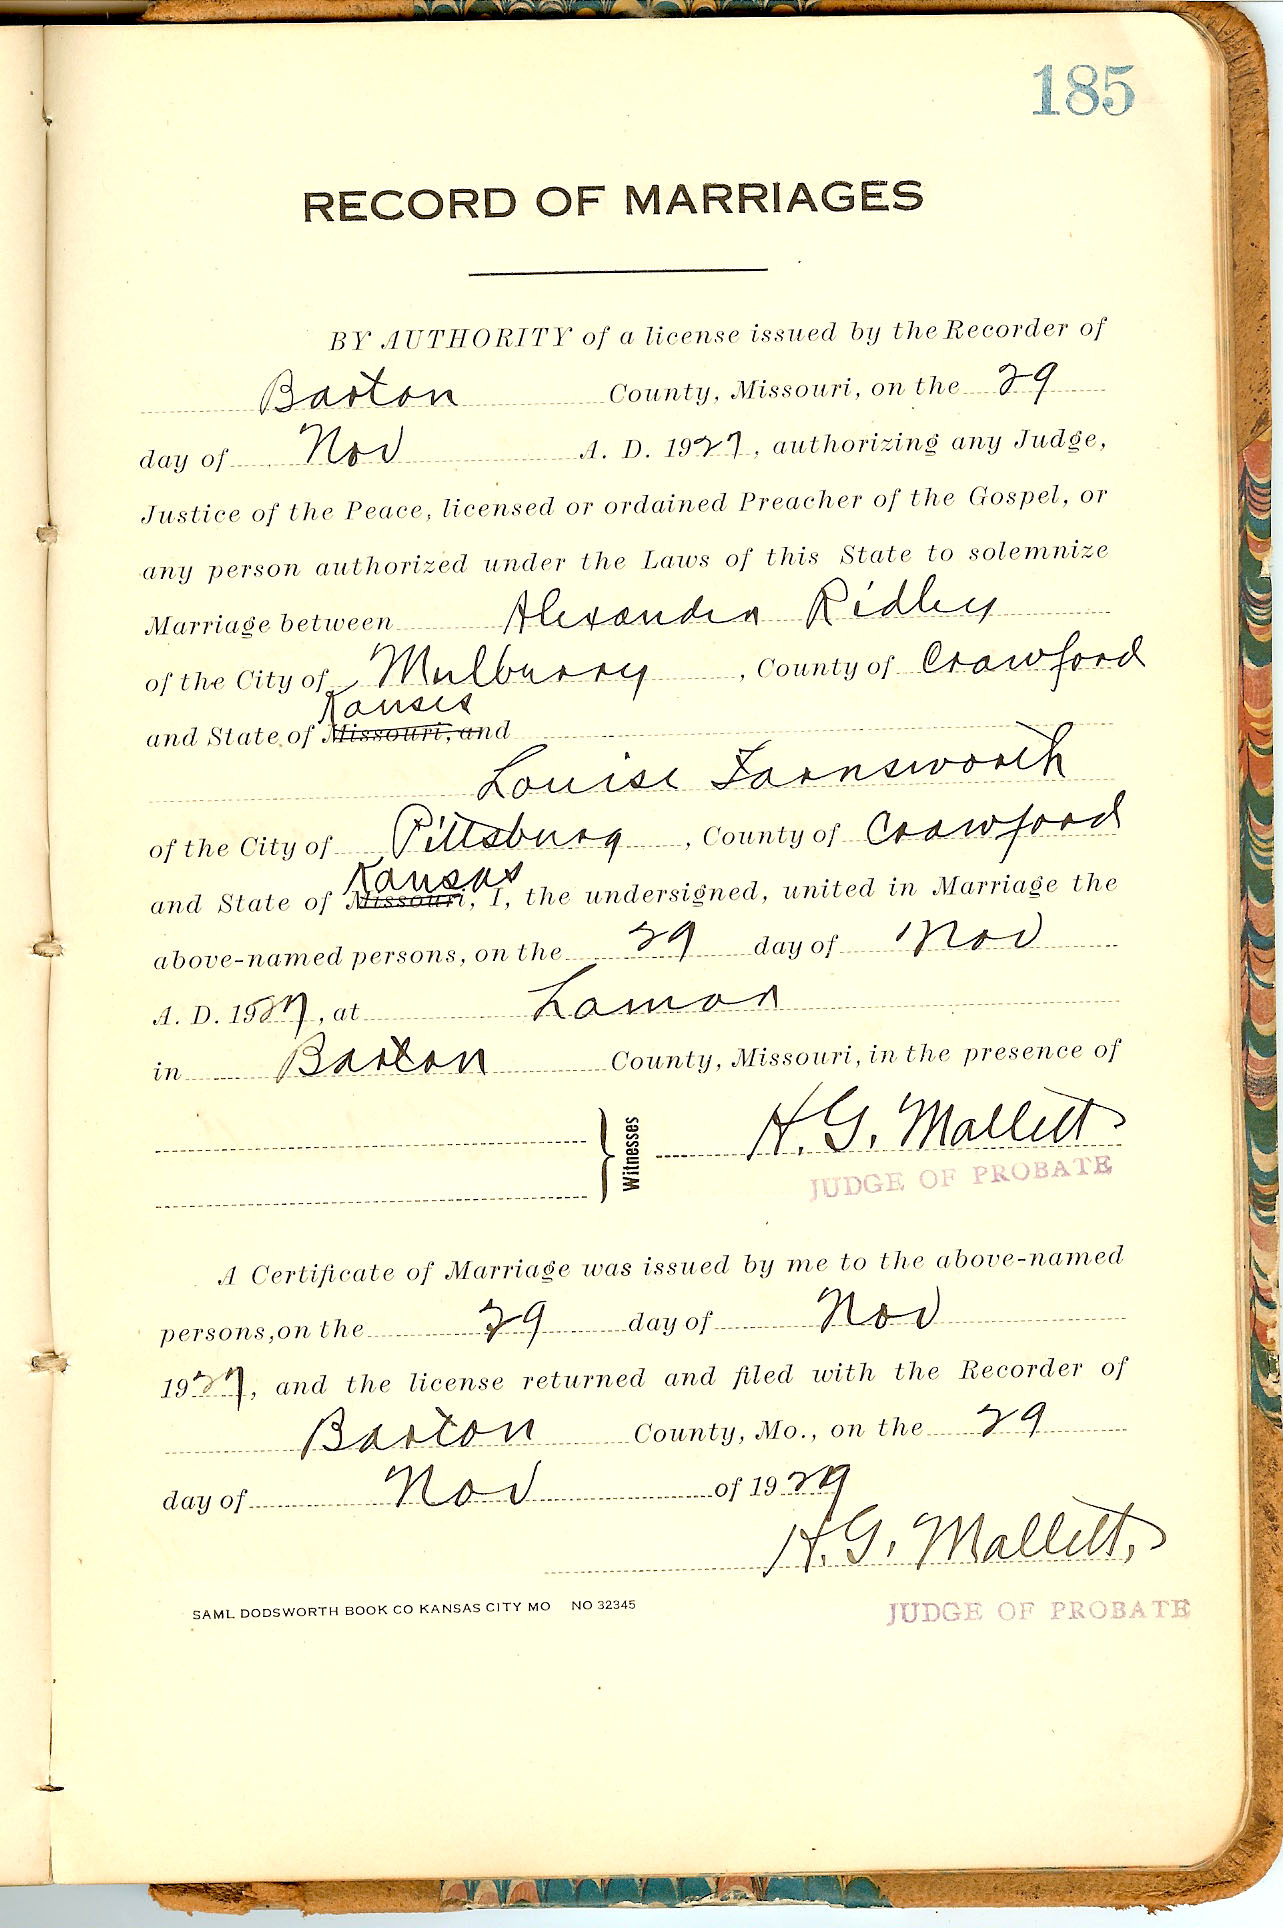 185
RECORD OF MARRIAGES
BY AUTHORITY of a license issued by the Recorder of
Barton County, Missouri, on the 29
day of Nov A. D. 1927, authorizing any Judge,
Justice of the Peace, licensed or ordained Preacher of the Gospel, or
any person authorized under the Laws of this State to solemnize
Marriage between Alexander Ridley
of the City of Mulburry, County of Crawford
Kansis
and State of Missouri, and
Louise Farnsworth
of the City of Pittsburg, County of Crawford
Kansas
and State of Missouri, I, the undersigned, united in Marriage the
above-named persons, on the 29 day of Nov
A. D. 1927, at Lamar
in Barton County, Missouri, in the presence of
Witnesses H. G. Mallett
JUDGE OF PROBATE
A Certificate of Marriage was issued by me to the above-named
persons, on the 29 day of Nov
1927, and the license returned and filed with the Recorder of
Barton County, Mo., on the 29
day of Nov of 1929
H. G. Mallett,
SAML DODSWORTH BOOK CO KANSAS CITY MO NO 32345
JUDGE OF PROBATE